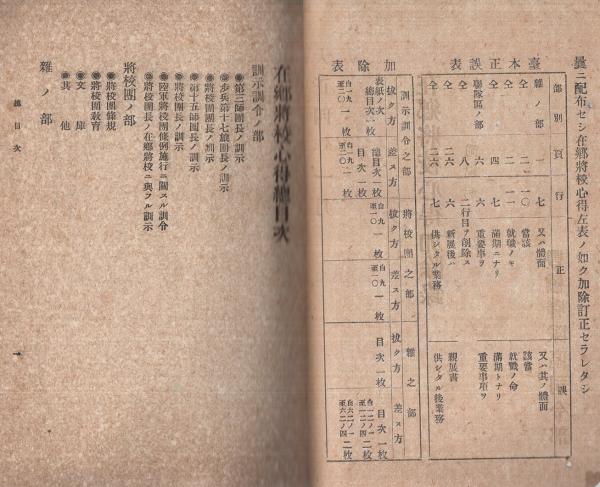 曩ニ配布セシ在鄕將校心得左表ノ如ク加除訂正セラレタシ
臺本正誤表
部別 頁 行 正 誤
雜ノ部 一 七 又ハ體面 又ハ其ノ體面
仝 二 一〇 當該 該當
仝 二 一一 就職ノキ 就職ノ命
仝 四 七 滿期ニナリ 滿期トナリ
聯隊區ノ部 六 六 重要事ヲ 重要事項ヲ
仝 八 二行目ヲ削除ス
仝 二六 六 新展後ハ 親展書
仝 二六 七 供シタル業務 供シタル後業務
加除表
訓示訓令之部 將校團之部 雜之部
拔ク方 差ス方 拔ク方 差ス方 拔ク方 差ス方
表紙ノ次
總目次一枚
自一九
至二〇 一枚
總目次一枚
目次一枚
自一九
至二〇 一枚
自九
至一〇 一枚
自九
至一〇 一枚
目次一枚
目次一枚
在鄕將校心得總目次
訓示訓令ノ部
第三師團長ノ訓示
步兵第十七旅團長ノ訓示
將校團團長ノ訓示
第十五師團長ノ訓示
將校團長ノ訓示
陸軍將校團條例施行ニ關スル訓令
將校團長ノ在鄕將校ニ與フル訓示
將校團ノ部
將校團條規
將校團敎育
文庫
其他
雜ノ部
總目次
一